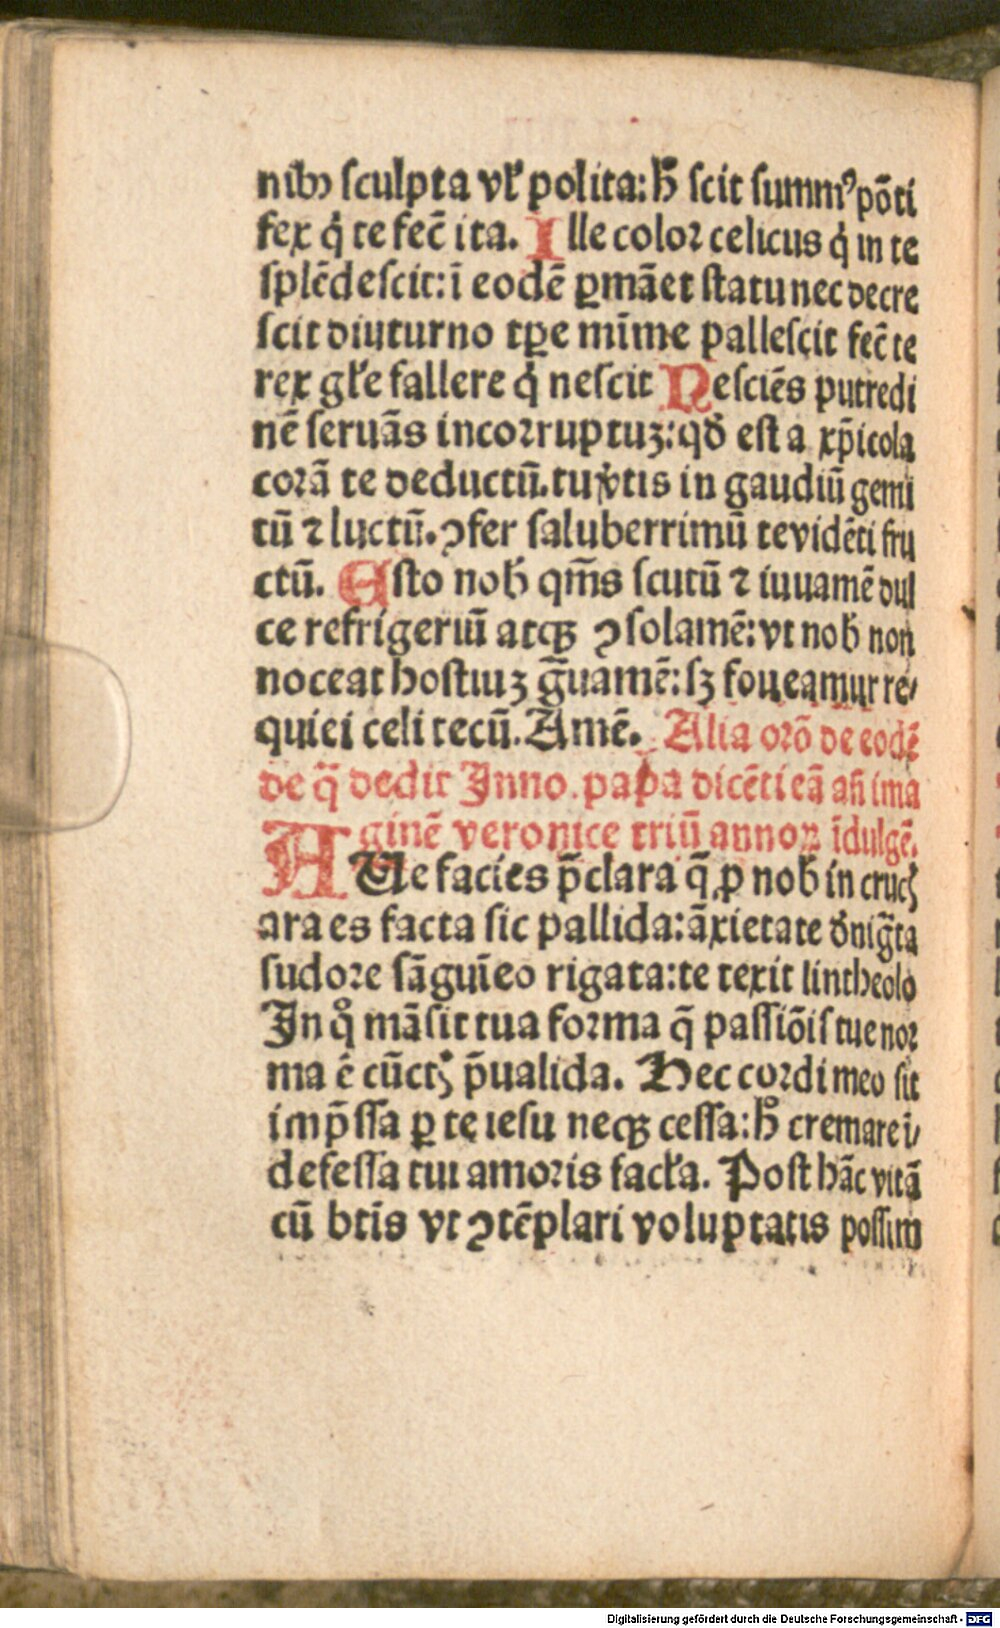 nibꝫ sculpta vl̕ polita: h̄ scit summꝰ põti
fex q̇ te fec̄ ita. Ille color celicus q̇ in te
splẽdescit: ĩ eodẽ ꝑmãet statu nec decre
scit diuturno tꝑe mĩme pallescit fec̄ te
rex gl̕e fallere q̇ nescit Nesciẽs putredi
nẽ seruãs incorruptuꝫ: qđ est a xp̄icola
corã te deductũ. tu v̕tis in gaudiũ gemi
tũ ⁊ luctũ. ꝯfer saluberrimũ te vidẽti fru
ctũ. Esto nob̄ qm̄s scutũ ⁊ iuuamẽ dul
ce refrigeriũ atqꝫ ꝯsolamẽ: vt nob̄ non
noceat hostiuꝫ g̃uamẽ: sꝫ foueamur re⸗
quiei celi tecũ. Amẽ. Alia orõ de eodẽ
de q̃ dedit Inno. papa dicẽti eã añ ima
ginẽ veronice triũ annoꝝ ĩdulgẽ.
AUe facies p̄clara q̃ ꝓ nob̄ in crucꝭ
ara es facta sic pallida: ãxietate đnig̃ta
sudore sãguĩeo rigata: te texit lintheolo
In qͦ mãsit tua forma q̃ passiõis tue nor
ma ẽ cũctꝭ p̄ualida. Hec cordi meo sit
imp̄ssa ꝑ te iesu neqꝫ cessa: hͦ cremare i⸗
defessa tui amoris facl̕a. Post hãc vitã
cũ btĩs vt ꝯtẽplari voluptatis possim
Digitalisierung gefördert durch die Deutsche Forschungsgemeinschaft - DFG